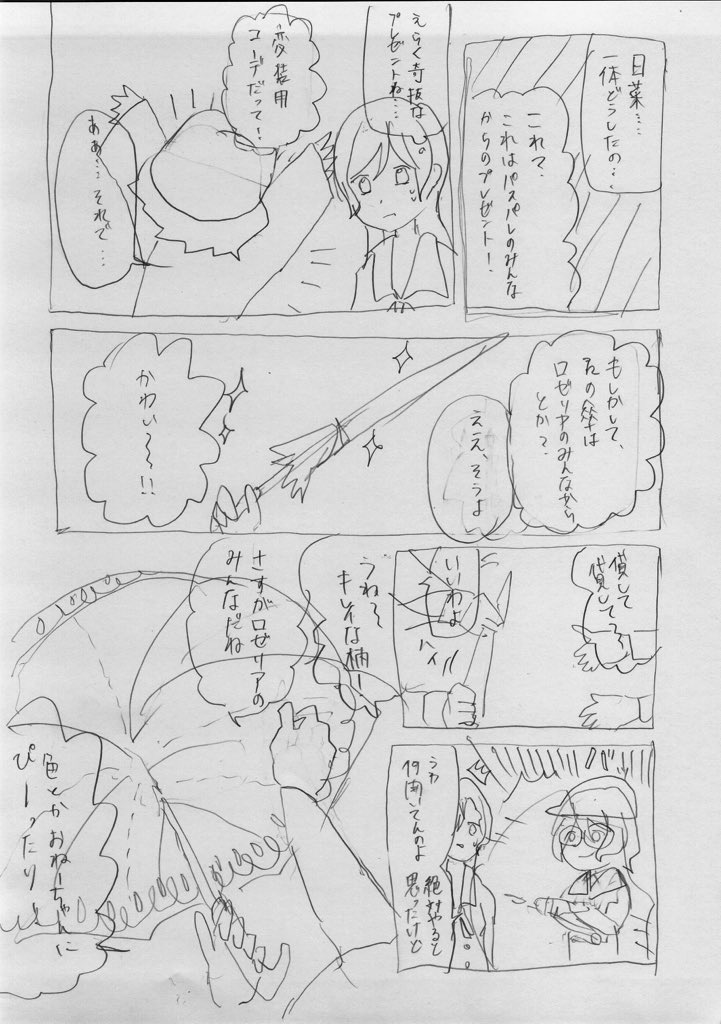 日菜……
一体どうしたの…
これ？
これはパスパレのみんな
からのプレゼント！
えらく奇抜な
プレゼントね……
変装用
コーデだって！
ああ…それで…
もしかして、
その傘は
ロゼリアのみんなから
とか？
ええ、そうよ
かわい〜〜!!
貸して
貸して〜
いいわよ
ハイ
バッ
うわ
何開いてんのよ
絶対やると
思ったけど
うわ〜
キレイな柄！
さすがロゼリアの
みんなだね
色とかおねーちゃんに
ぴーったり！